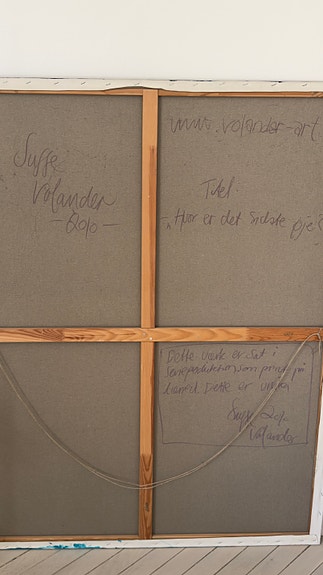 Suffe
Volander
- 2010 -
www.volander-art.
Titel
"Hvor er det sidste øje
Dette værk er sat i
som print på
lærred. Dette er
Suffe 2010
Volander